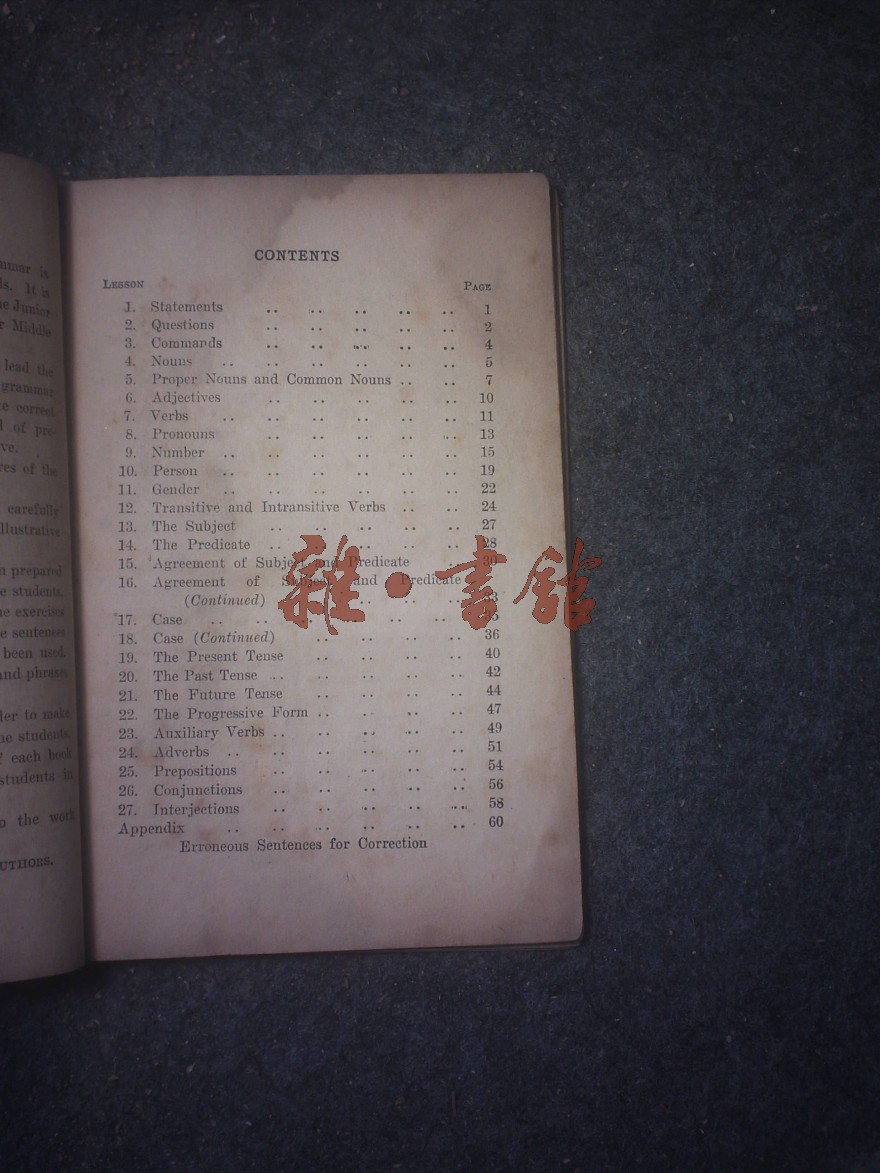 nmar is
ls. It is
e Junior
r Middle
lead the
grammar
e correct
l of pre-
ve.
res of the
carefully
llustrative
n prepared
e students.
ne exercises
e sentences
been used
and phrases
der to make
he students,
f each book
students in
o the work
UTHORS.
CONTENTS
LESSON PAGE
1. Statements .. .. .. .. .. 1
2. Questions .. .. .. .. .. 2
3. Commands .. .. .. .. .. 4
4. Nouns .. .. .. .. .. .. 5
5. Proper Nouns and Common Nouns .. .. 7
6. Adjectives .. .. .. .. .. 10
7. Verbs .. .. .. .. .. .. 11
8. Pronouns .. .. .. .. .. 13
9. Number .. .. .. .. .. .. 15
10. Person .. .. .. .. .. .. 19
11. Gender .. .. .. .. .. .. 22
12. Transitive and Intransitive Verbs .. .. 24
13. The Subject .. .. .. .. .. 27
14. The Predicate .. .. .. .. .. 28
15. Agreement of Subject and Predicate .. 30
16. Agreement of Subject and Predicate
(Continued) .. .. .. .. 33
17. Case .. .. .. .. .. .. 35
18. Case (Continued) .. .. .. .. 36
19. The Present Tense .. .. .. .. 40
20. The Past Tense .. .. .. .. .. 42
21. The Future Tense .. .. .. .. 44
22. The Progressive Form .. .. .. .. 47
23. Auxiliary Verbs .. .. .. .. .. 49
24. Adverbs .. .. .. .. .. .. 51
25. Prepositions .. .. .. .. .. 54
26. Conjunctions .. .. .. .. .. 56
27. Interjections .. .. .. .. .. 58
Appendix .. .. .. .. .. .. 60
Erroneous Sentences for Correction
雜·書館